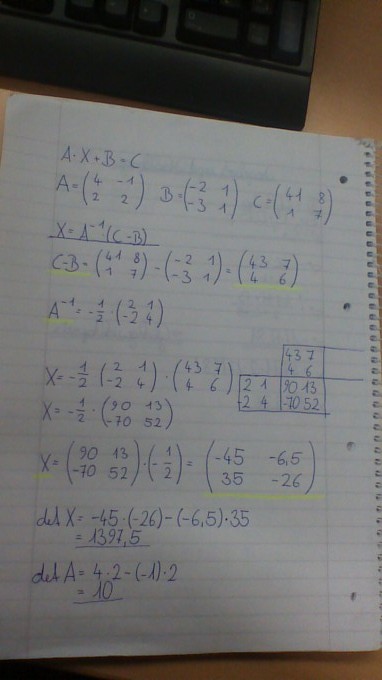 A·X+B=C
A=(4 -1 / 2 2) B=(-2 1 / -3 1) C=(41 8 / 1 7)
X=A⁻¹(C-B)
C-B=(41 8 / 1 7)-(-2 1 / -3 1)=(43 7 / 4 6)
A⁻¹=-1/2·(2 1 / -2 4)
X=-1/2·(2 1 / -2 4)·(43 7 / 4 6)
43 7
4 6
2 1 90 13
-2 4 -70 52
X=-1/2·(90 13 / -70 52)
X=(90 13 / -70 52)·(-1/2)=(-45 -6,5 / 35 -26)
det X=-45·(-26)-(-6,5)·35
=1397,5
det A=4·2-(-1)·2
=10